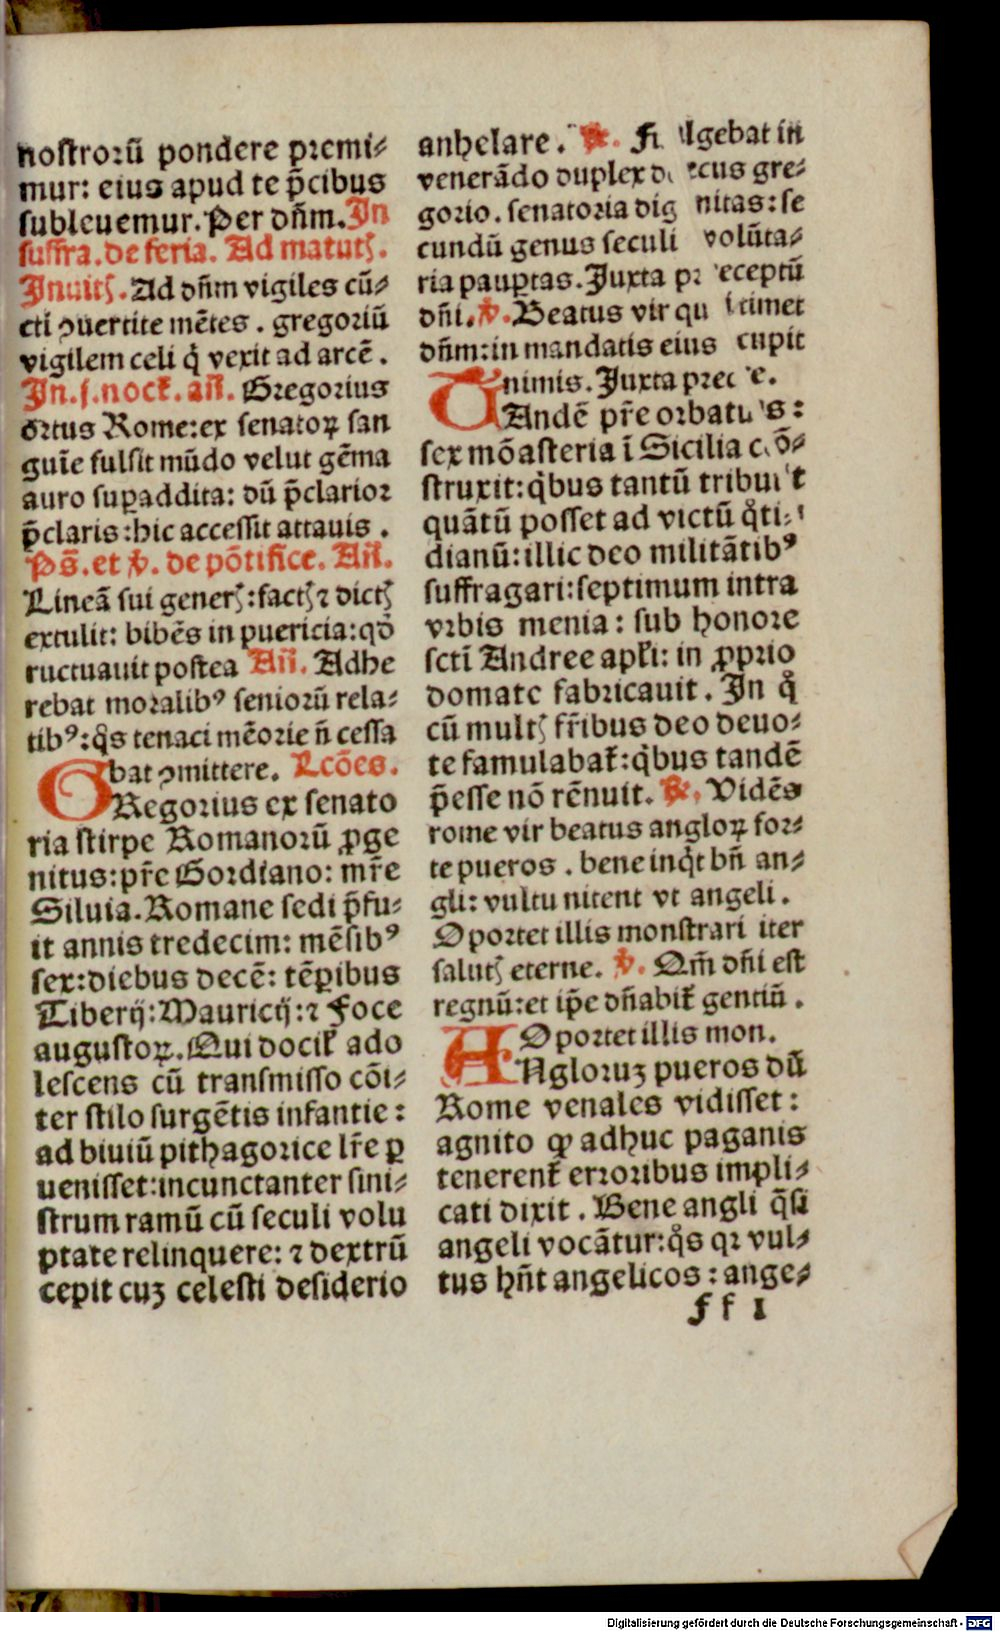 nostrorū pondere premi⸗
mur: eius apud te p̄cibus
subleuemur. Per dn̄m. In
suffra. de feria. Ad matutꝭ.
Inuitꝭ. Ad dn̄m vigiles cū⸗
cti ꝯuertite mētes. gregoriū
vigilem celi q̇ vexit ad arcē.
In .j. nock̄. an̄. Gregorius
ortus Rome: ex senatoꝝ san
guīe fulsit mūdo velut gēma
auro suꝑaddita: dū p̄clarior
p̄claris: hic accessit attauis.
Ps̄. et v̄. de pōtifice. An̄.
Lineā sui generꝭ: factꝭ ⁊ dictꝭ
extulit: bibēs in puericia: qd̄
ructuauit postea An̄. Adhe
rebat moralibꝰ seniorū rela⸗
tibꝰ: q̊s tenaci mēorie n̄ cessa
bat ꝯmittere. Lcōes.
GRegorius ex senato
ria stirpe Romanorū ꝓge
nitus: pr̄e Gordiano: mr̄e
Siluia. Romane sedi p̄fu⸗
it annis tredecim: mēsibꝰ
sex: diebus decē: tēꝑibus
Tiberij: Mauricij: ⁊ Foce
augustoꝝ. Qui docik̄ ado
lescens cū transmisso cōi⸗
ter stilo surgētis infantie:
ad biuiū pithagorice lr̄e ꝑ
uenisset: incunctanter sini⸗
strum ramū cū seculi volu
ptate relinquere: ⁊ dextrū
cepit cuꝫ celesti desiderio
anhelare. ℟. Fulgebat in
venerādo duplex decus gre⸗
gorio. senatoria dignitas: se
cundū genus seculi volūta⸗
ria pauꝑtas. Juxta preceptū
dn̄i. v̄. Beatus vir qui timet
dn̄m: in mandatis eius cupit
nimis. Juxta prece.
UAndē pr̄e orbatus:
sex mōasteria ī Sicilia cō⸗
struxit: q̇bus tantū tribuit
quātū posset ad victū q̊ti⸗
dianū: illic deo militātibꝰ
suffragari: septimum intra
vrbis menia: sub honore
sctī Andree apk̄i: in ꝓprio
domate fabricauit. In q̊
cū multꝭ fr̄ibus deo deuo⸗
te famulabak̄: q̇bus tandē
p̄esse nō rēnuit. ℟. Vidēs
rome vir beatus angloꝝ for⸗
te pueros. bene inq̇t bn̄ an⸗
gli: vultu nitent vt angeli.
Oportet illis monstrari iter
salutꝭ eterne. v̄. Qm̄ dn̄i est
regnū: et ip̄e dn̄abik̄ gentiū.
Oportet illis mon.
ANgloruꝫ pueros dū
Rome venales vidisset:
agnito ꝙ adhuc paganis
tenerenk̄ erroribus impli⸗
cati dixit. Bene angli q̄si
angeli vocātur: q̊s qꝛ vul⸗
tus hn̄t angelicos: ange⸗
f f 1
Digitalisierung gefördert durch die Deutsche Forschungsgemeinschaft - DFG